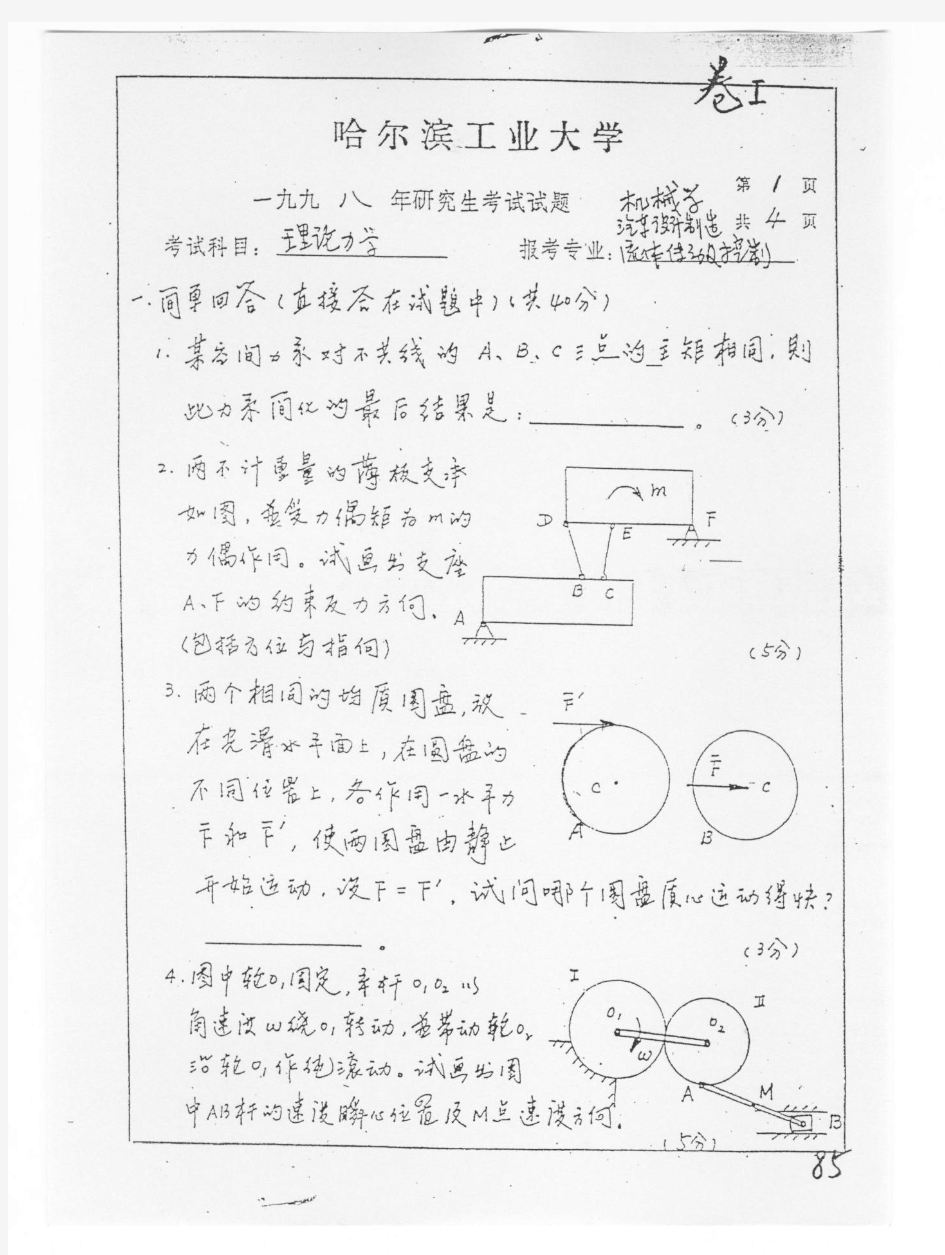 卷I
哈尔滨工业大学
一九九 八 年研究生考试试题 机械学 第 1 页
汽车设计制造 共 4 页
考试科目: 理论力学 报考专业: 流体传动及控制
一.简单回答(直接答在试题中)(共40分)
1. 某空间力系对不共线的 A、B、C 三点的主矩相同,则
此力系简化的最后结果是: 。 (3分)
2. 两不计重量的薄板支承
如图,并受力偶矩为m的
力偶作用。试画出支座
A、F的约束反力方向.
(包括方位与指向) (5分)
m
D E F
B C
A
3. 两个相同的均质圆盘,放
在光滑水平面上,在圆盘的
不同位置上,各作用一水平力
F和F′,使两圆盘由静止
开始运动,设F=F′,试问哪个圆盘质心运动得快?
。 (3分)
F′
C
A
F
C
B
4. 图中轮O₁固定,系杆O₁O₂以
角速度ω绕O₁转动,并带动轮O₂
沿轮O₁作纯滚动。试画出图
中AB杆的速度瞬心位置及M点速度方向.
(5分)
I II
O₁ O₂
ω
A M B
85